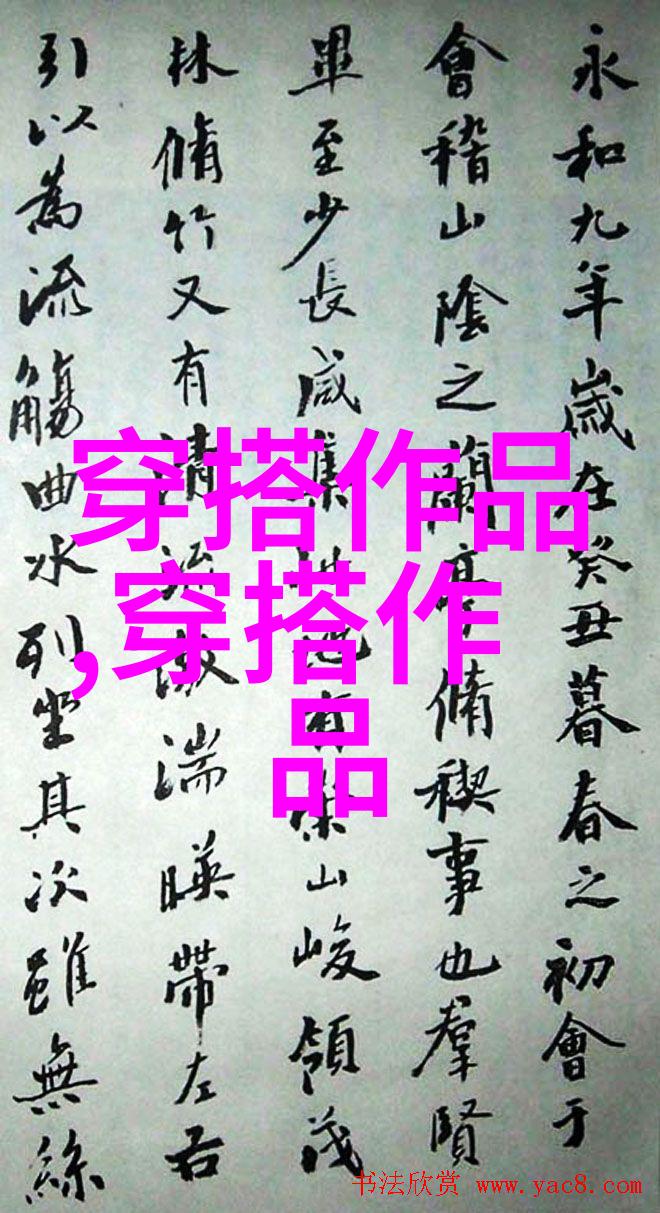 永和九年歲在癸丑暮春之初會于
會稽山陰之蘭亭脩稧事也羣賢
畢至少長咸集此地有崇山峻領茂
林脩竹又有清流激湍暎帶左右
引以為流觴曲水列坐其次雖無絲
穿搭作品
,穿搭作
品
书法欣赏 www.yac8.com